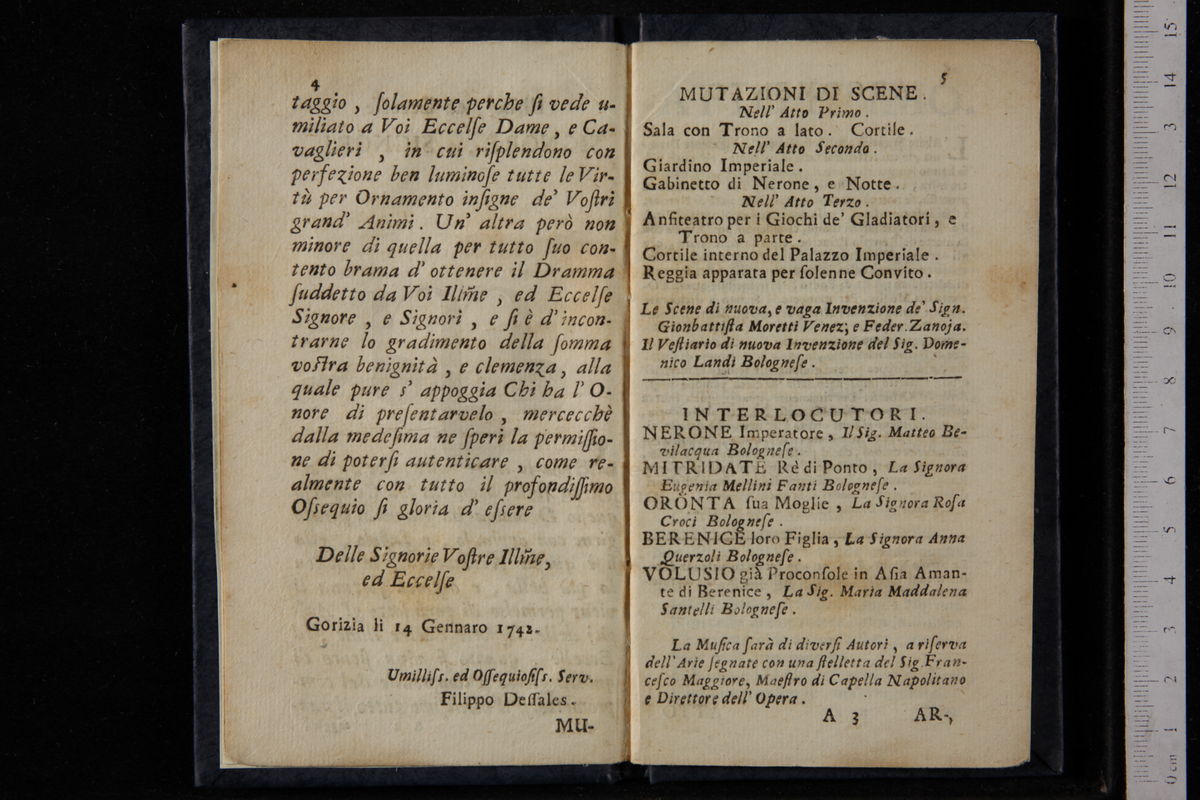 4
taggio , ſolamente perche ſi vede u-
miliato a Voi Eccelſe Dame, e Ca-
vaglieri , in cui riſplendono con
perfezione ben luminoſe tutte le Vir-
tù per Ornamento inſigne de' Voſtri
grand' Animi. Un' altra però non
minore di quella per tutto ſuo con-
tento brama d' ottenere il Dramma
ſuddetto da Voi Illm̃e , ed Eccelſe
Signore , e Signori , e ſi è d' incon-
trarne lo gradimento della ſomma
voſtra benignità , e clemenza, alla
quale pure s' appoggia Chi ha l' O-
nore di preſentarvelo , mercecchè
dalla medeſima ne ſperi la permiſſio-
ne di poterſi autenticare , come re-
almente con tutto il profondiſſimo
Oſsequio ſi gloria d' eſsere
Delle Signorie Voſtre Illm̃e,
ed Eccelſe
Gorizia li 14 Gennaro 1742.
Umiliſs. ed Oſſequioſiſs. Serv.
Filippo Deſſales.
MU-
5
MUTAZIONI DI SCENE.
Nell' Atto Primo.
Sala con Trono a lato. Cortile.
Nell' Atto Secondo.
Giardino Imperiale.
Gabinetto di Nerone, e Notte.
Nell' Atto Terzo.
Anfiteatro per i Giochi de' Gladiatori, e
Trono a parte.
Cortile interno del Palazzo Imperiale.
Reggia apparata per ſolenne Convito.
Le Scene di nuova, e vaga Invenzione de' Sign.
Gionbattiſta Moretti Venez; e Feder. Zanoja.
Il Veſtiario di nuova Invenzione del Sig. Dome-
nico Landi Bologneſe.
INTERLOCUTORI.
NERONE Imperatore, Il Sig. Matteo Be-
vilacqua Bologneſe.
MITRIDATE Rè di Ponto, La Signora
Eugenia Mellini Fanti Bologneſe.
ORONTA ſua Moglie, La Signora Roſa
Croci Bologneſe.
BERENICE loro Figlia, La Signora Anna
Querzoli Bologneſe.
VOLUSIO già Proconſole in Aſia Aman-
te di Berenice, La Sig. Maria Maddalena
Santelli Bologneſe.
La Muſica ſarà di diverſi Autori, a riſerva
dell' Arie ſegnate con una ſtelletta del Sig. Fran-
ceſco Maggiore, Maeſtro di Capella Napolitano
e Direttore dell' Opera.
A 3 AR-,
0 cm 1 2 3 4 5 6 7 8 9 10 11 12 13 14 15